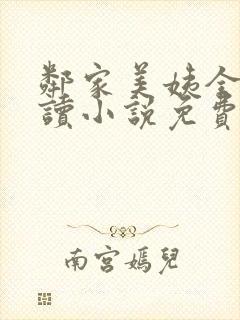 鄰家美姨全
讀小說免費
南宮嫣兒